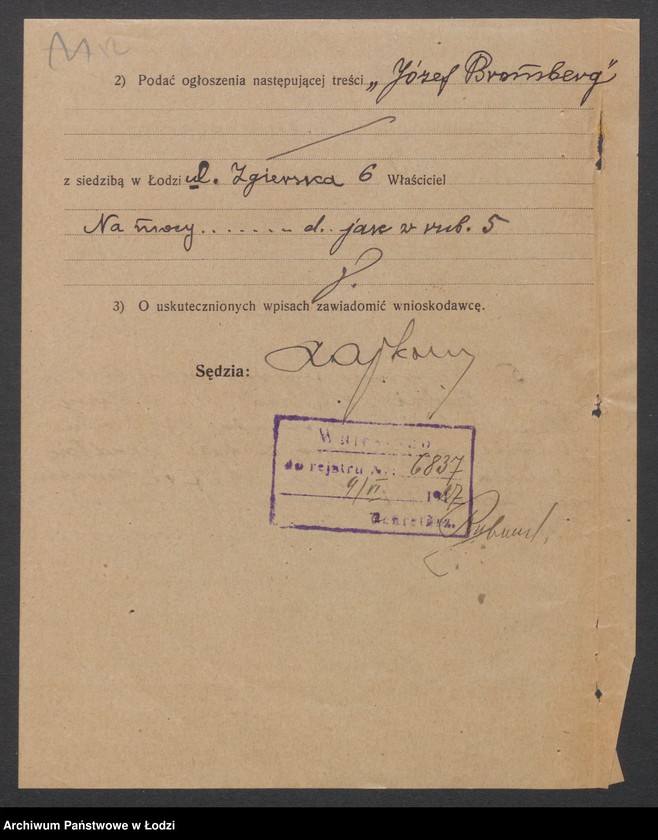 2) Podać ogłoszenia następującej treści „Józef Bromberg"
z siedzibą w Łodzi ul. Zgierska 6 Właściciel
Na mocy ....... d. jak w rub. 5
3) O uskutecznionych wpisach zawiadomić wnioskodawcę.
Sędzia:
Wniesiono
do rejstru Nr. 6837
9/VI 1927
Sekretarz.
Archiwum Państwowe w Łodzi